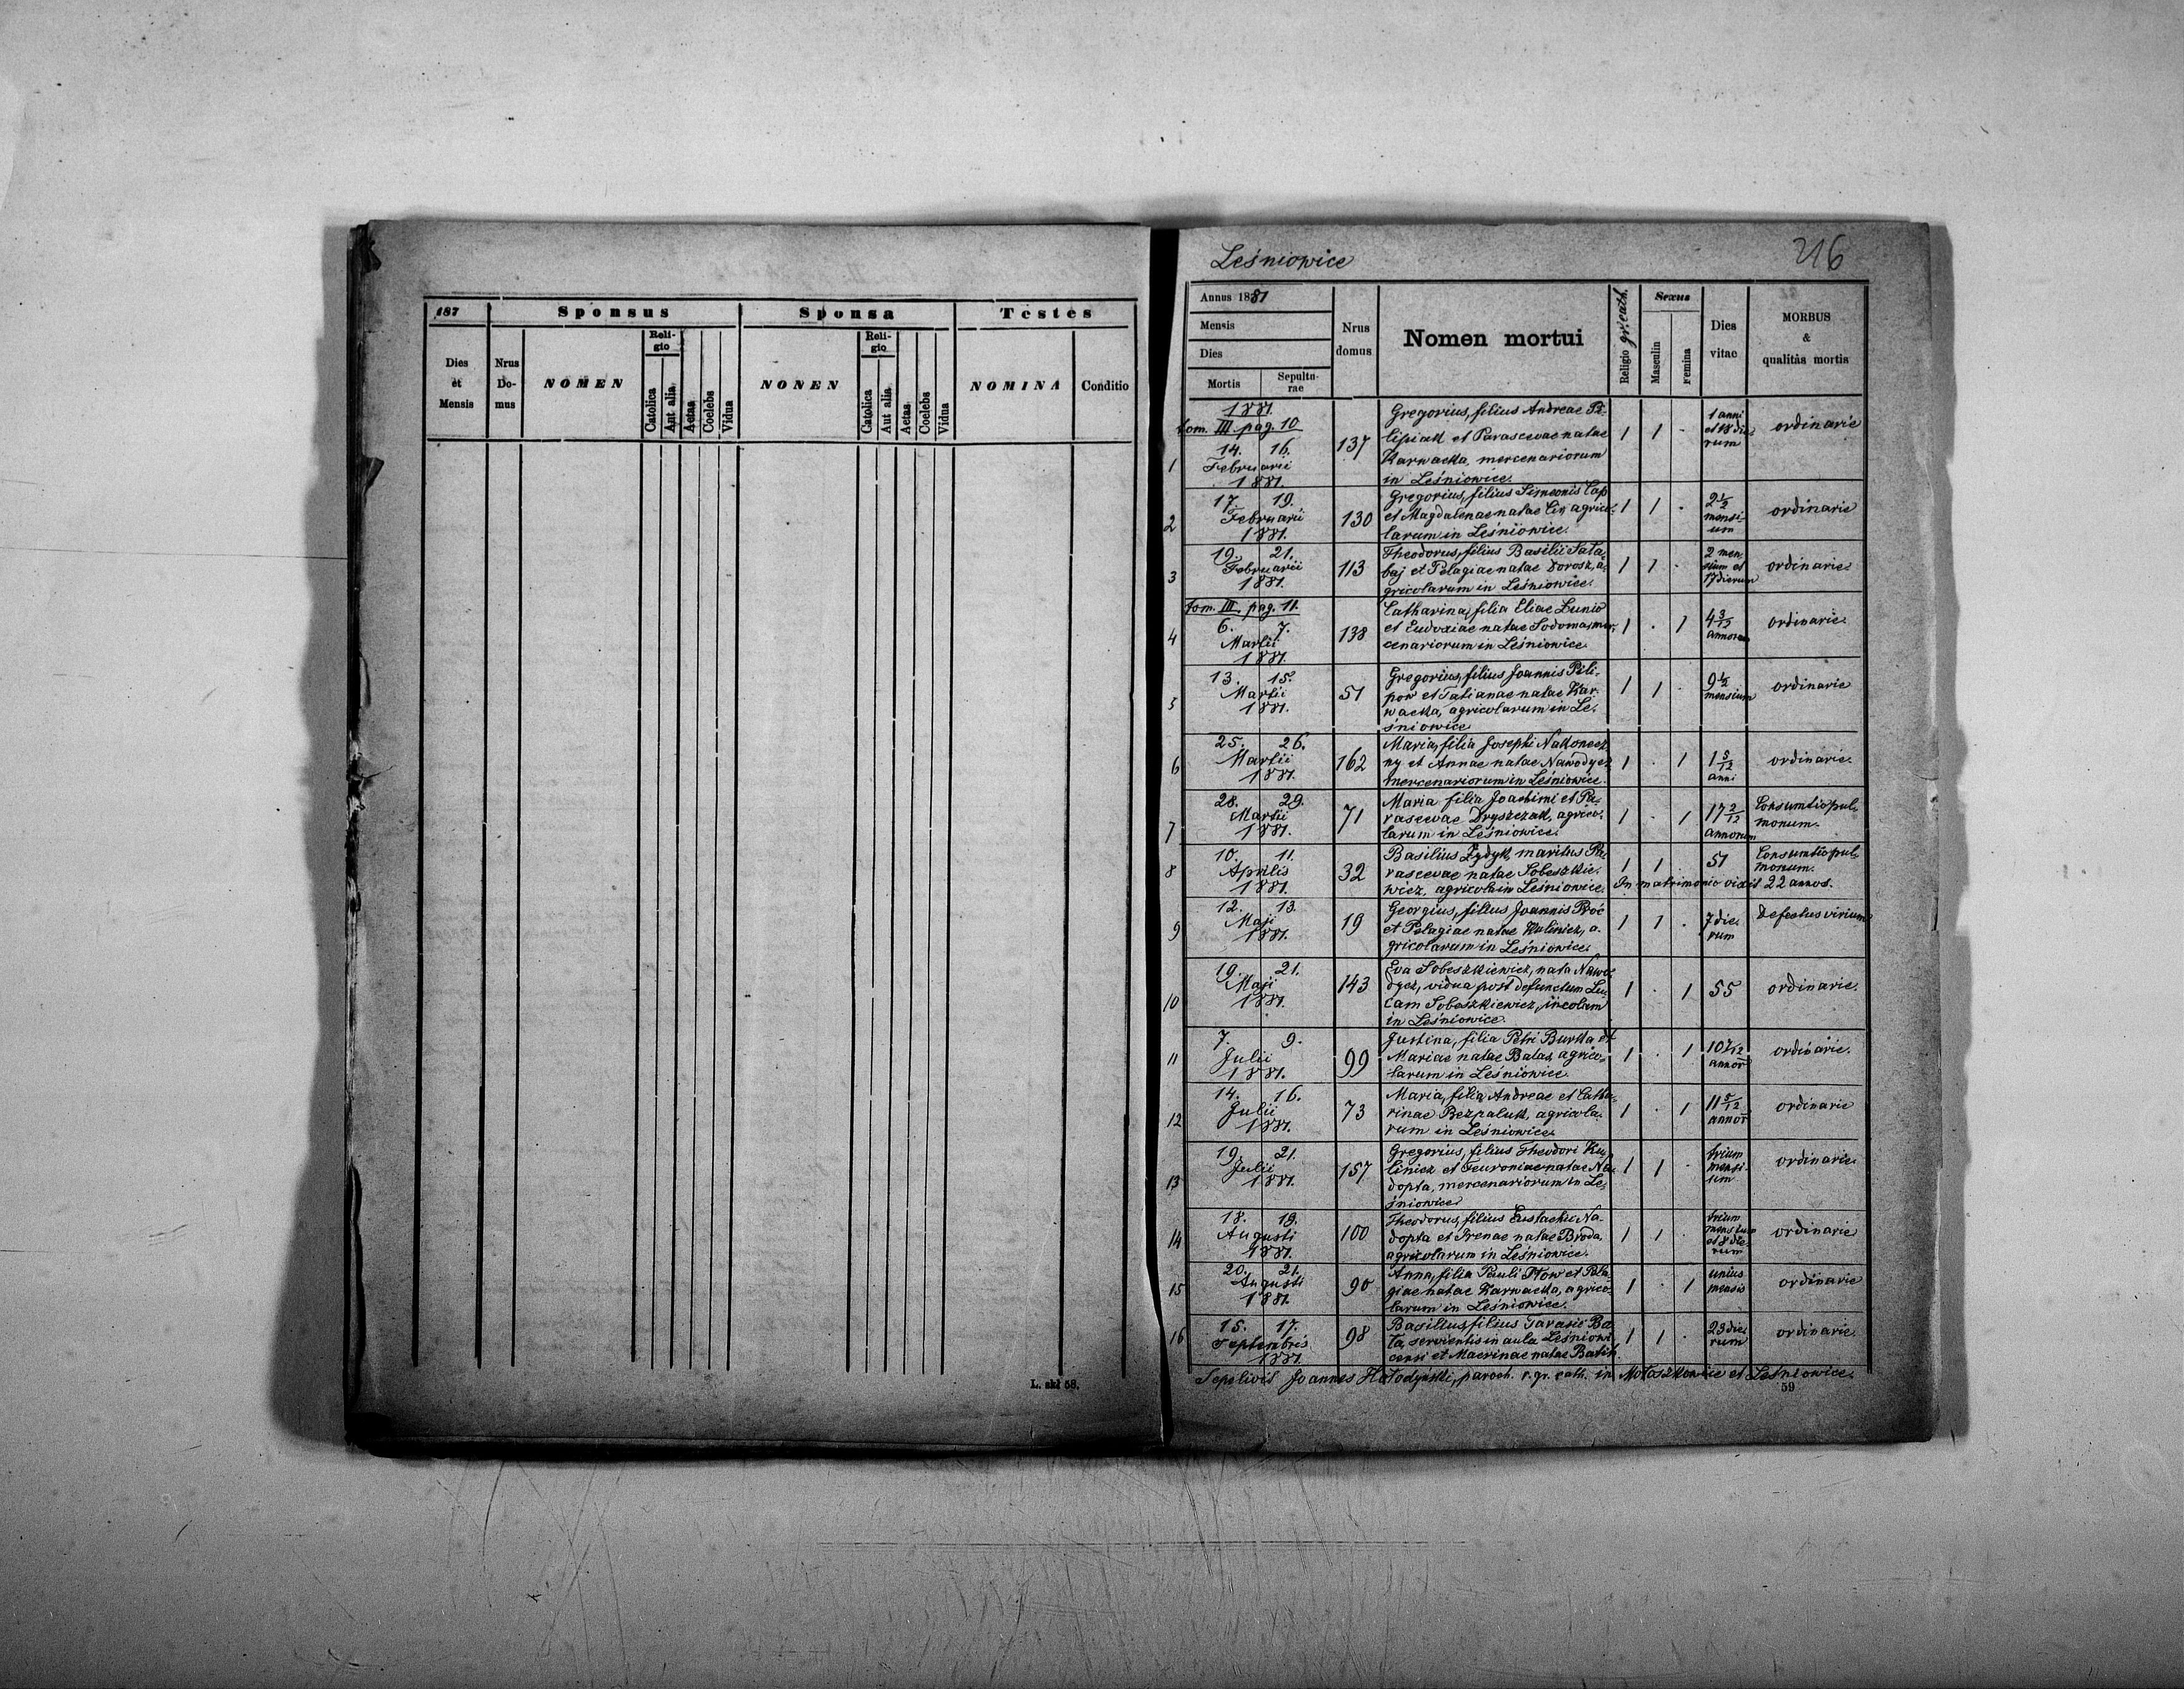 187
Sponsus
Sponsa
Testes
Dies et Mensis
Nrus Do- mus
NOMEN
Reli- gio
Catolica
Aut alia
Aetas
Coelebs
Vidua
NONEN
Reli- gio
Catolica
Aut alia
Aetas
Coelebs
Vidua
NOMINA
Conditio
L. skł 58.
Leśniowice
216
Annus 1881
Mensis
Dies
Mortis
Sepultu- rae
Nrus domus
Nomen mortui
Religio gr. cath.
Sexus
Masculin
Femina
Dies vitae
MORBUS & qualitas mortis
1881.
tom. III. pag. 10
1 14. 16. Februarii 1881.
137
Gregorius, filius Andreae Pi-
lipiak et Parascevae natae
Karwacka, mercenariorum
in Leśniowice.
1 1 .
1 anni et 18 die- rum
ordinarie
2 17. 19. Februarii 1881.
130
Gregorius, filius Simeonis Cap
et Magdalenae natae Cip, agrico-
larum in Leśniowice.
1 1 .
2 1/2 mensi- um
ordinarie
3 19. 21. Februarii 1881.
113
Theodorus, filius Basilii Sata-
baj et Pelagiae natae Dorosz, a-
gricolarum in Leśniowice.
1 1 .
2 men- sium et 17 dierum
ordinarie
tom. III. pag. 11.
4 6. 7. Martii 1881.
138
Catharina, filia Eliae Lunio
et Eudoxiae natae Sodoma, mer-
cenariorum in Leśniowice.
1 . 1
4 3/12 annorum
ordinarie
5 13. 15. Martii 1881.
51
Gregorius, filius Joannis Pili-
pow et Tatianae natae Kar-
wacka, agricolarum in Le-
śniowice
1 1 .
9 1/2 mensium
ordinarie
6 25. 26. Martii 1881.
162
Maria, filia Josephi Nakonecz-
ny et Annae natae Nawodycz
mercenariorum in Leśniowice.
1 . 1
1 5/12 anni
ordinarie.
7 28. 29. Martii 1881.
71
Maria filia Joachimi et Pa-
rascevae Dryszczak, agrico-
larum in Leśniowice.
1 . 1
17 2/12 annorum
Consumtio pul- monum.
8 10. 11. Aprilis 1881.
32
Basilius Zydyk, maritus Pa-
rascevae natae Sobeszkie-
wicz, agricola in Leśniowice.
1 1 .
51
Consumtio pul- monum.
In matrimonio vixit 22 annos.
9 12. 13. Maji 1881.
19
Georgius, filius Joannis Proć
et Pelagiae natae Kuliniez, a-
gricolarum in Leśniowice.
1 1 .
7 die- rum
Defectus virium
10 19. 21. Maji 1881.
143
Eva Sobeszkiewicz, nata Nawo-
dycz, vidua post defunctum Lu-
cam Sobeszkiewicz, incolam
in Leśniowice.
1 . 1
55
ordinarie.
11 7. 9. Julii 1881.
99
Justina, filia Petri Burka et
Mariae natae Balas, agrico-
larum in Leśniowice.
1 . 1
10 7/12 annor
ordinarie.
12 14. 16. Julii 1881.
73
Maria, filia Andreae et Catha-
rinae Bezpaluk, agricola-
rum in Leśniowice.
1 . 1
11 5/12 annor
ordinarie
13 19. 21. Julii 1881.
157
Gregorius, filius Theodori Ku-
liniez et Feuroniae natae Na-
dopta, mercenariorum in Le-
śniowice
1 1 .
trium mensi- um
ordinarie
14 18. 19. Augusti 1881.
100
Theodorus, filius Eustachii Na-
dopta et Irenae natae Broda,
agricolarum in Leśniowice.
1 1 .
trium mensium et 8 die- rum
ordinarie
15 20. 21. Augusti 1881.
90
Anna, filia Pauli Ptow et Pela-
giae natae Karwacka, agrico-
larum in Leśniowice.
1 . 1
unius mensis
ordinarie
16 15. 17. Septembris 1881.
98
Basilius, filius Tarasii Ba-
ta, servientis in aula Leśniowi-
censi et Macrinae natae Batih.
1 1 .
23 die- rum
ordinarie
Sepelivit Joannes Hołodyński, paroch. r. gr. cath. in Mołoszkowice et Leśniowice.
59